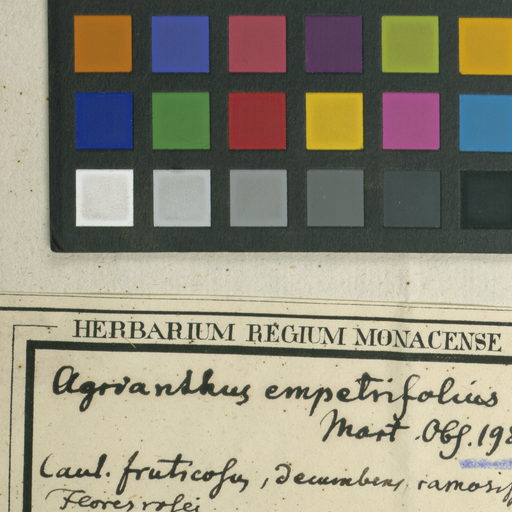 HERBARIUM REGIUM MONACENSE
Agrianthus empetrifolius
Mart. Obs. 198
Caul. fruticosus, decumbens, ramosis
Flores rosei